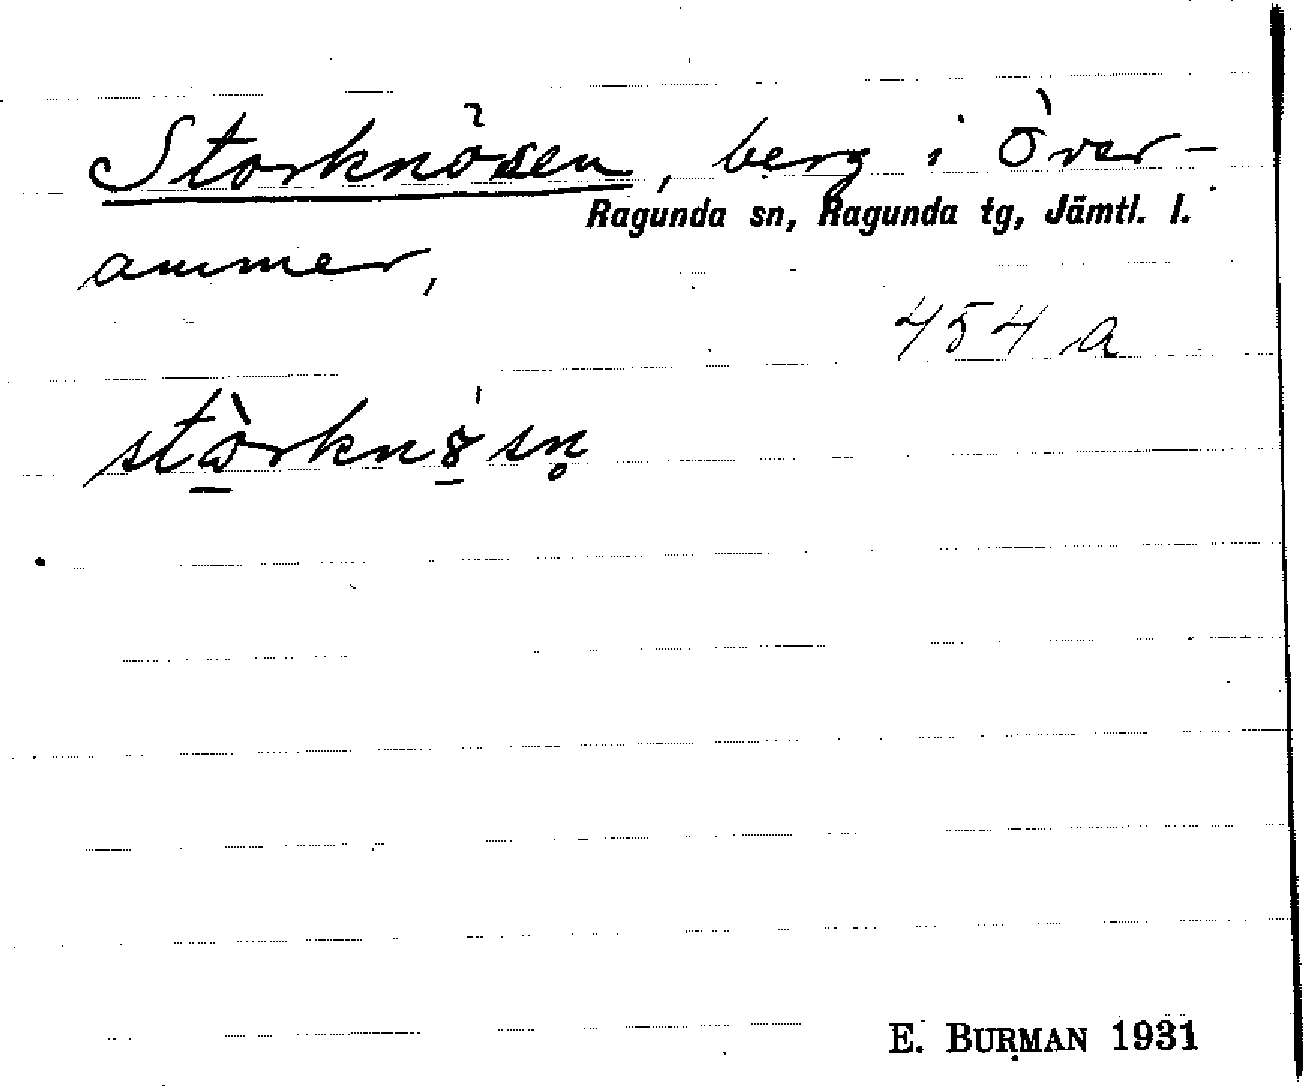 Storknösen, berg i Över-
Ragunda sn, Ragunda tg, Jämtl. l.
ammer,
454 a
stɷ̀rkn8̱´sn̥
E. BURMAN 1931